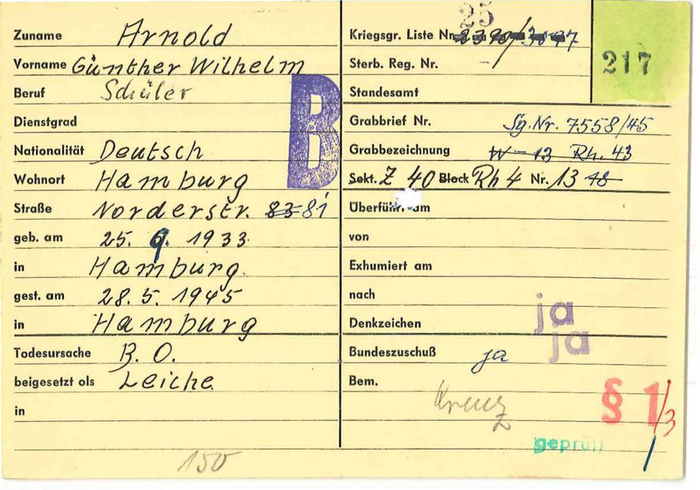 Zuname Arnold
Vorname Günther Wilhelm
Beruf Schüler
Dienstgrad
Nationalität Deutsch
Wohnort Hamburg
Straße Norderstr. 81
geb. am 25. 9. 1933
in Hamburg
gest. am 28.5. 1945
in Hamburg
Todesursache B. O.
beigesetzt als Leiche
in
150
B
25
Kriegsgr. Liste Nr.
217
Sterb. Reg. Nr. —
Standesamt
Grabbrief Nr. Sg. Nr. 7558/45
Grabbezeichnung W-13 Rh. 43
Sekt. Z 40 Block Rh 4 Nr. 13 48
Überführt am
von
Exhumiert am
nach
ja
Denkzeichen
ja
Bundeszuschuß ja
Bem. Kreuz
§ 1/3
geprüft